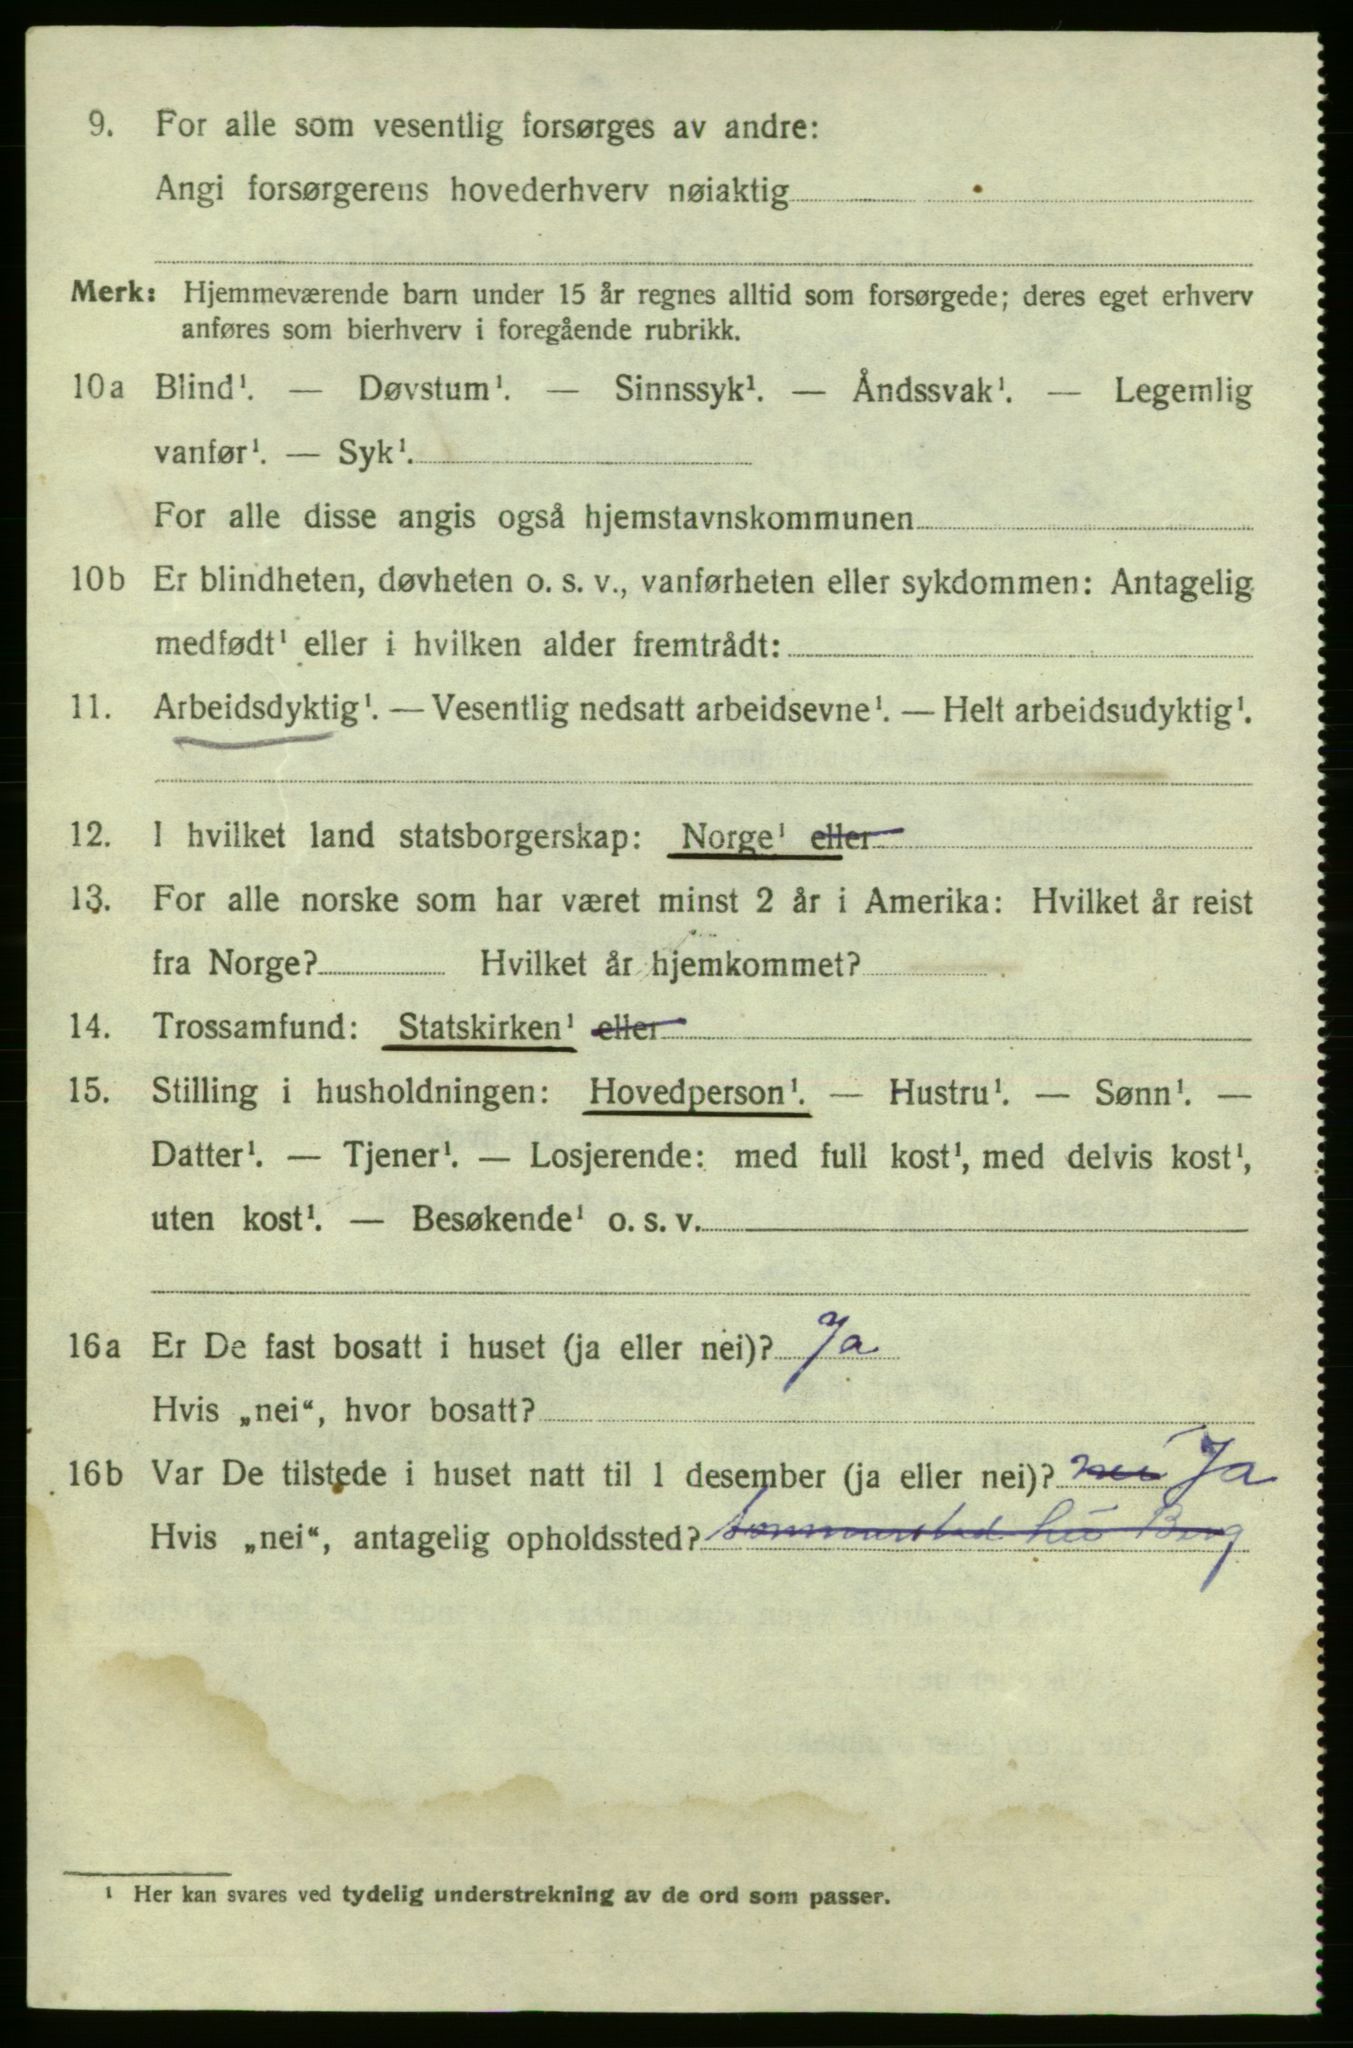 9. For alle som vesentlig forsørges av andre:
Angi forsørgerens hovederhverv nøiaktig
Merk: Hjemmeværende barn under 15 år regnes alltid som forsørgede; deres eget erhverv
anføres som bierhverv i foregående rubrikk.
10a Blind¹. — Døvstum¹. — Sinnssyk¹. — Åndssvak¹. — Legemlig
vanfør¹. — Syk¹.
For alle disse angis også hjemstavnskommunen
10b Er blindheten, døvheten o. s. v., vanførheten eller sykdommen: Antagelig
medfødt¹ eller i hvilken alder fremtrådt:
11. Arbeidsdyktig¹. — Vesentlig nedsatt arbeidsevne¹. — Helt arbeidsudyktig¹.
12. I hvilket land statsborgerskap: Norge¹ eller
13. For alle norske som har været minst 2 år i Amerika: Hvilket år reist
fra Norge? Hvilket år hjemkommet?
14. Trossamfund: Statskirken¹ eller
15. Stilling i husholdningen: Hovedperson¹. — Hustru¹. — Sønn¹. —
Datter¹. — Tjener¹. — Losjerende: med full kost¹, med delvis kost¹,
uten kost¹. — Besøkende¹ o. s. v.
16a Er De fast bosatt i huset (ja eller nei)? Ja
Hvis „nei“, hvor bosatt?
16b Var De tilstede i huset natt til 1 desember (ja eller nei)? nei Ja
Hvis „nei“, antagelig opholdssted? Berg
¹ Her kan svares ved tydelig understrekning av de ord som passer.